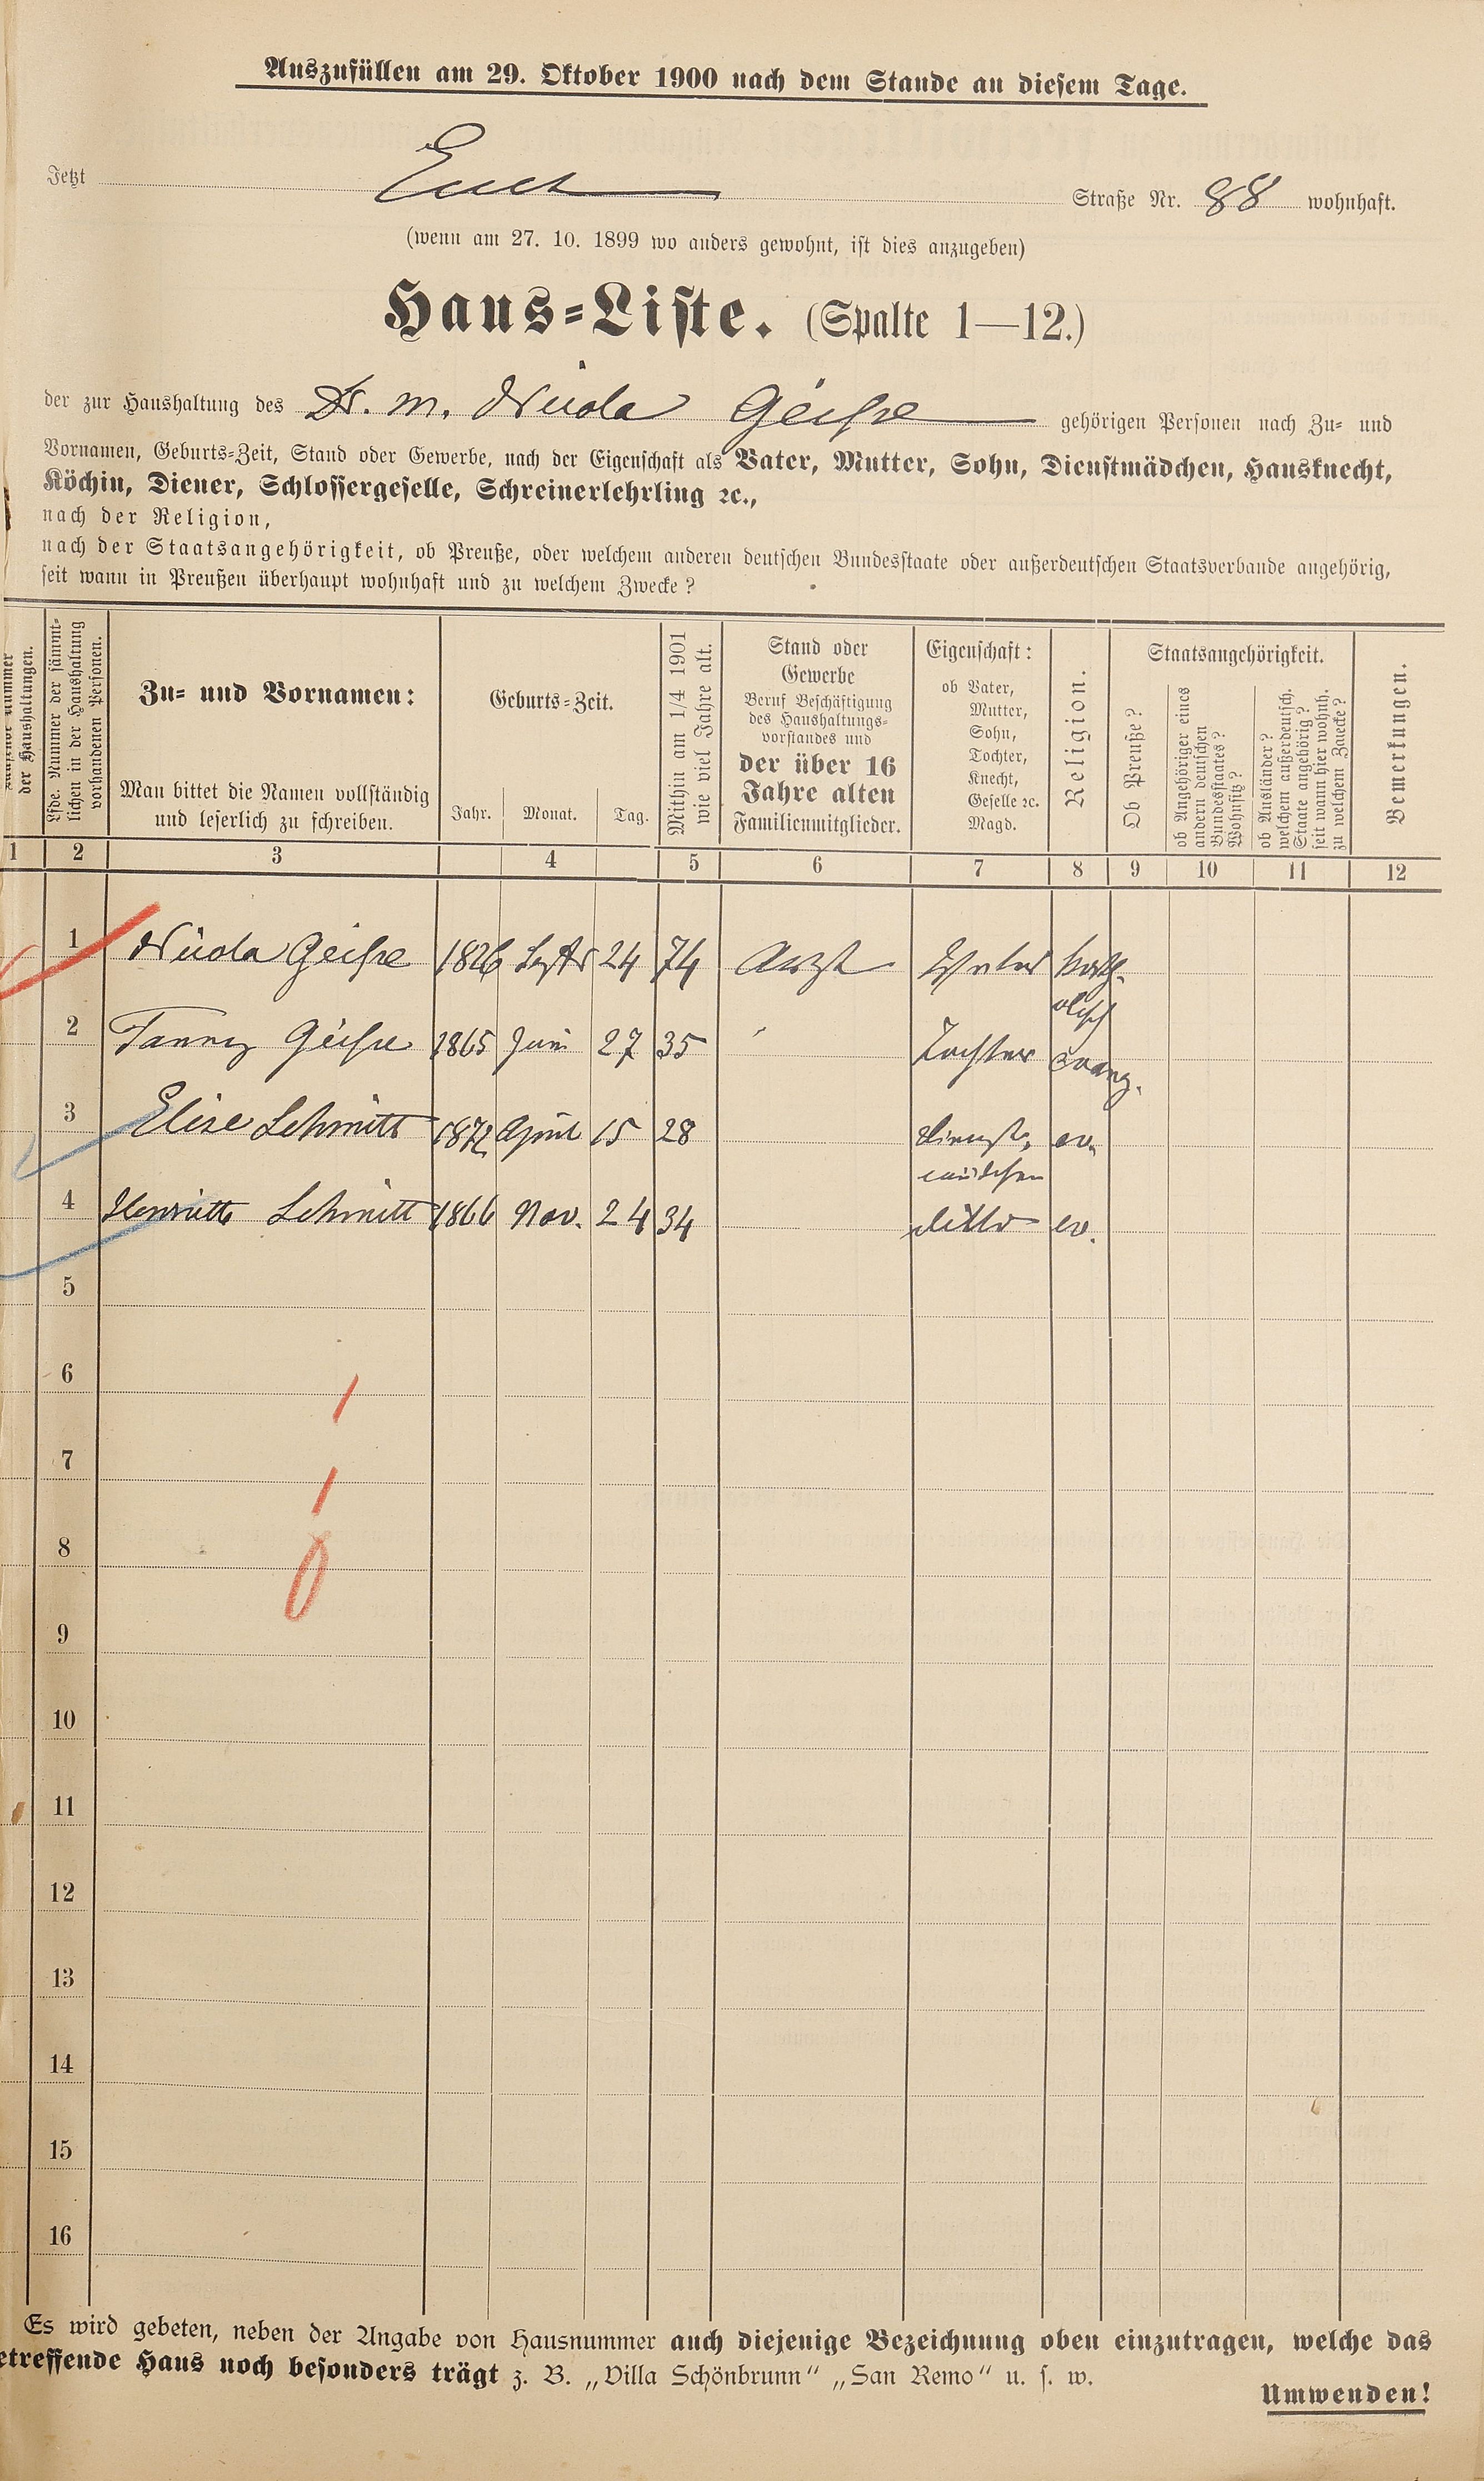 Auszufüllen am 29. Oktober 1900 nach dem Stande an diesem Tage.
Jetzt Straße Nr. 88 wohnhaft.
(wenn am 27. 10. 1899 wo anders gewohnt, ist dies anzugeben)
Haus-Liste. (Spalte 1—12.)
der zur Haushaltung des Dr. m. Geisse gehörigen Personen nach Zu- und
Vornamen, Geburts-Zeit, Stand oder Gewerbe, nach der Eigenschaft als Vater, Mutter, Sohn, Dienstmädchen, Hausknecht,
Köchin, Diener, Schlossergeselle, Schreinerlehrling ꝛc.,
nach der Religion,
nach der Staatsangehörigkeit, ob Preuße, oder welchem anderen deutschen Bundesstaate oder außerdeutschen Staatsverbande angehörig,
seit wann in Preußen überhaupt wohnhaft und zu welchem Zwecke?
nummer
der Haushaltungen.
Lfde. Nummer der sämmt-
lichen in der Haushaltung
vorhandenen Personen.
Zu- und Vornamen:
Man bittet die Namen vollständig
und leserlich zu schreiben.
Geburts-Zeit.
Jahr. Monat. Tag.
Mithin am 1/4 1901
wie viel Jahre alt.
Stand oder
Gewerbe
Beruf Beschäftigung
des Haushaltungs-
vorstandes und
der über 16
Jahre alten
Familienmitglieder.
Eigenschaft:
ob Vater,
Mutter,
Sohn,
Tochter,
Knecht,
Geselle ꝛc.
Magd.
Religion.
Staatsangehörigkeit.
Ob Preuße?
ob Angehöriger eines
andern deutschen
Bundesstaates?
Wohnsitz?
ob Ausländer?
welchem außerdeutsch.
Staate angehörig?
seit wann hier wohnh.
zu welchem Zwecke?
Bemerkungen.
1 2 3 4 5 6 7 8 9 10 11 12
1 Geisse 1826 Septbr 24 74 Arzt Vater kath-
olisch
2 Fanny Geisse 1865 Juni 27 35 " Tochter evang.
3 Elise Schmitt 1872 April 15 28 Dienst- ev.
mädchen
4 Henriette Schmitt 1866 Nov. 24 34 ditto ev.
5
6
7
8
9
10
11
12
13
14
15
16
Es wird gebeten, neben der Angabe von Hausnummer auch diejenige Bezeichnung oben einzutragen, welche das
etreffende Haus noch besonders trägt z. B. „Villa Schönbrunn" „San Remo" u. s. w.
Umwenden!